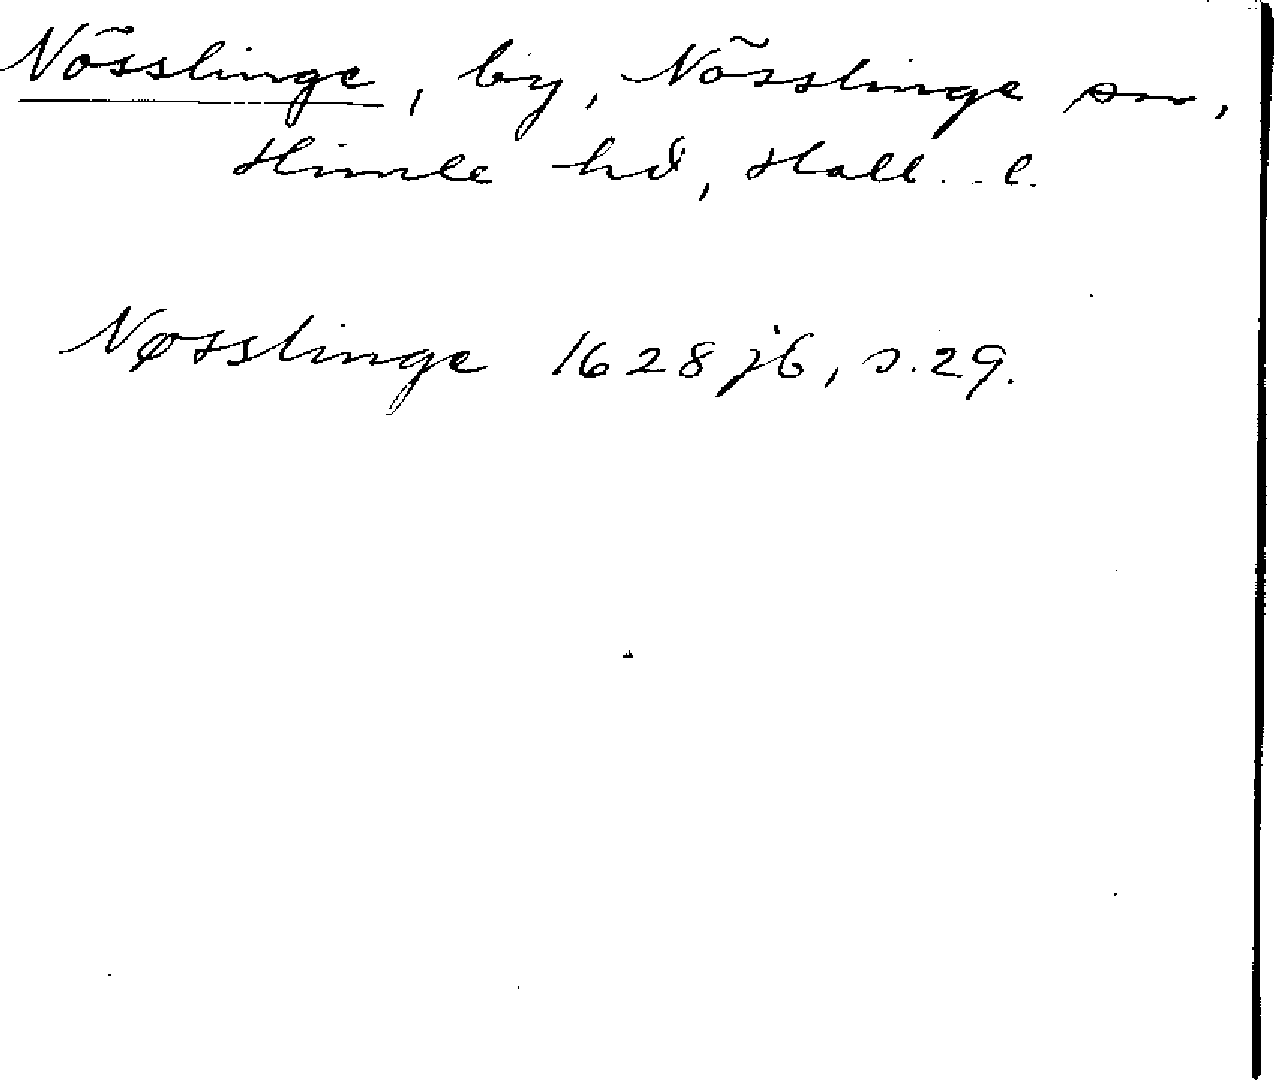 Nösslinge, by, Nösslinge sn,
Himle hd, Hall. l.
Nøsslinge 1628 jb, s. 29.